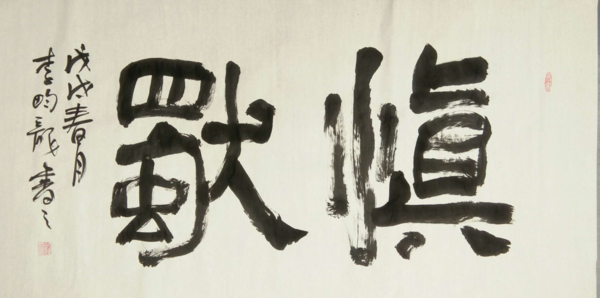 慎獨
戊戌春月
李昀龍書之